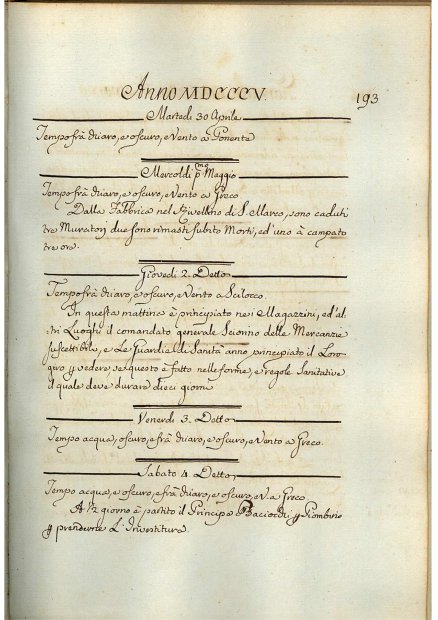 Anno MDCCCV.
193
Martedì 30 Aprile
Tempo frà chiaro, e oscuro, e Vento a Ponente
Mercoldì pmo Maggio
Tempo frà chiaro, e oscuro, e Vento a Greco
Dalla Fabbrica nel Rivellino di S. Marco, sono caduti
tre Muratori due sono rimasti subito Morti, ed' uno à campato
tre ore.
Giovedì 2. Detto
Tempo frà chiaro, e oscuro, e Vento a Scilocco.
In questa mattina è principiato nei Magazzini, ed' al,,
tri Luoghi il comandato generale Sciorino delle Mercanzie
suscettibili, e Le Guardie di Sanità anno principiato il Loro
giro p vedere, se questo è fatto nelle forme, e regole Sanitative
il quale deve durare dieci giorni
Venerdì 3. Detto
Tempo acqua, oscuro, e frà chiaro, e oscuro, e Vento a Greco.
Sabato 4 Detto
Tempo acqua, e oscuro, e frà chiaro, e oscuro, e V. a Greco
A 1/2 giorno è partito il Principe Baciocchi p Piombino
p prenderne L'Investitura